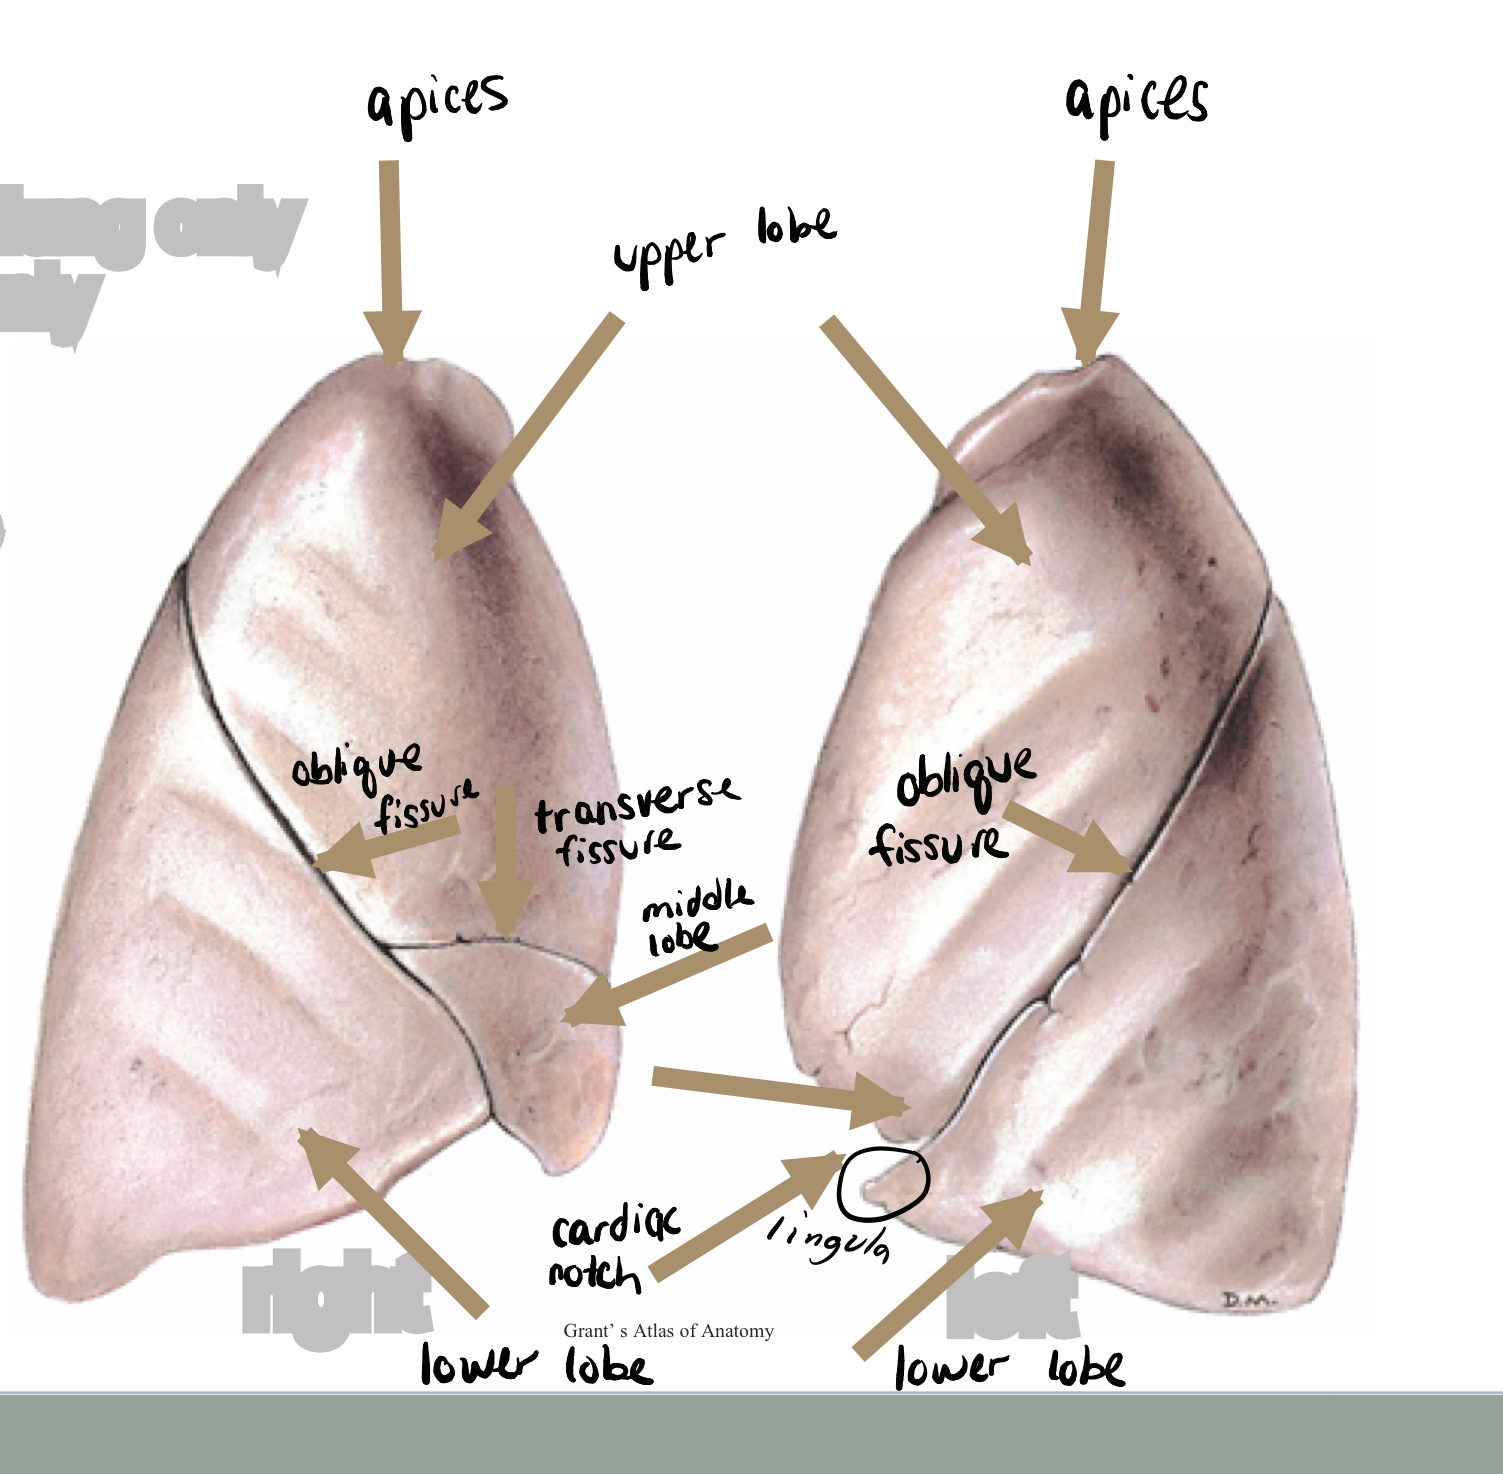 apices
apices
lung only
upper lobe
oblique
fissure
transverse
fissure
oblique
fissure
middle
lobe
cardiac
notch
lingula
right
left
D.M.
Grant’ s Atlas of Anatomy
lower lobe
lower lobe